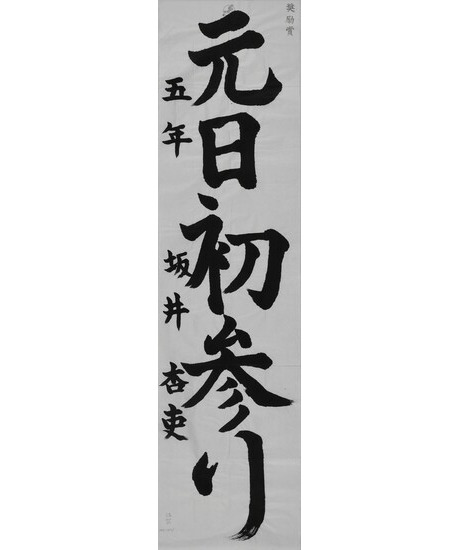 奨励賞
元日初参り
五年 坂井 杏吏